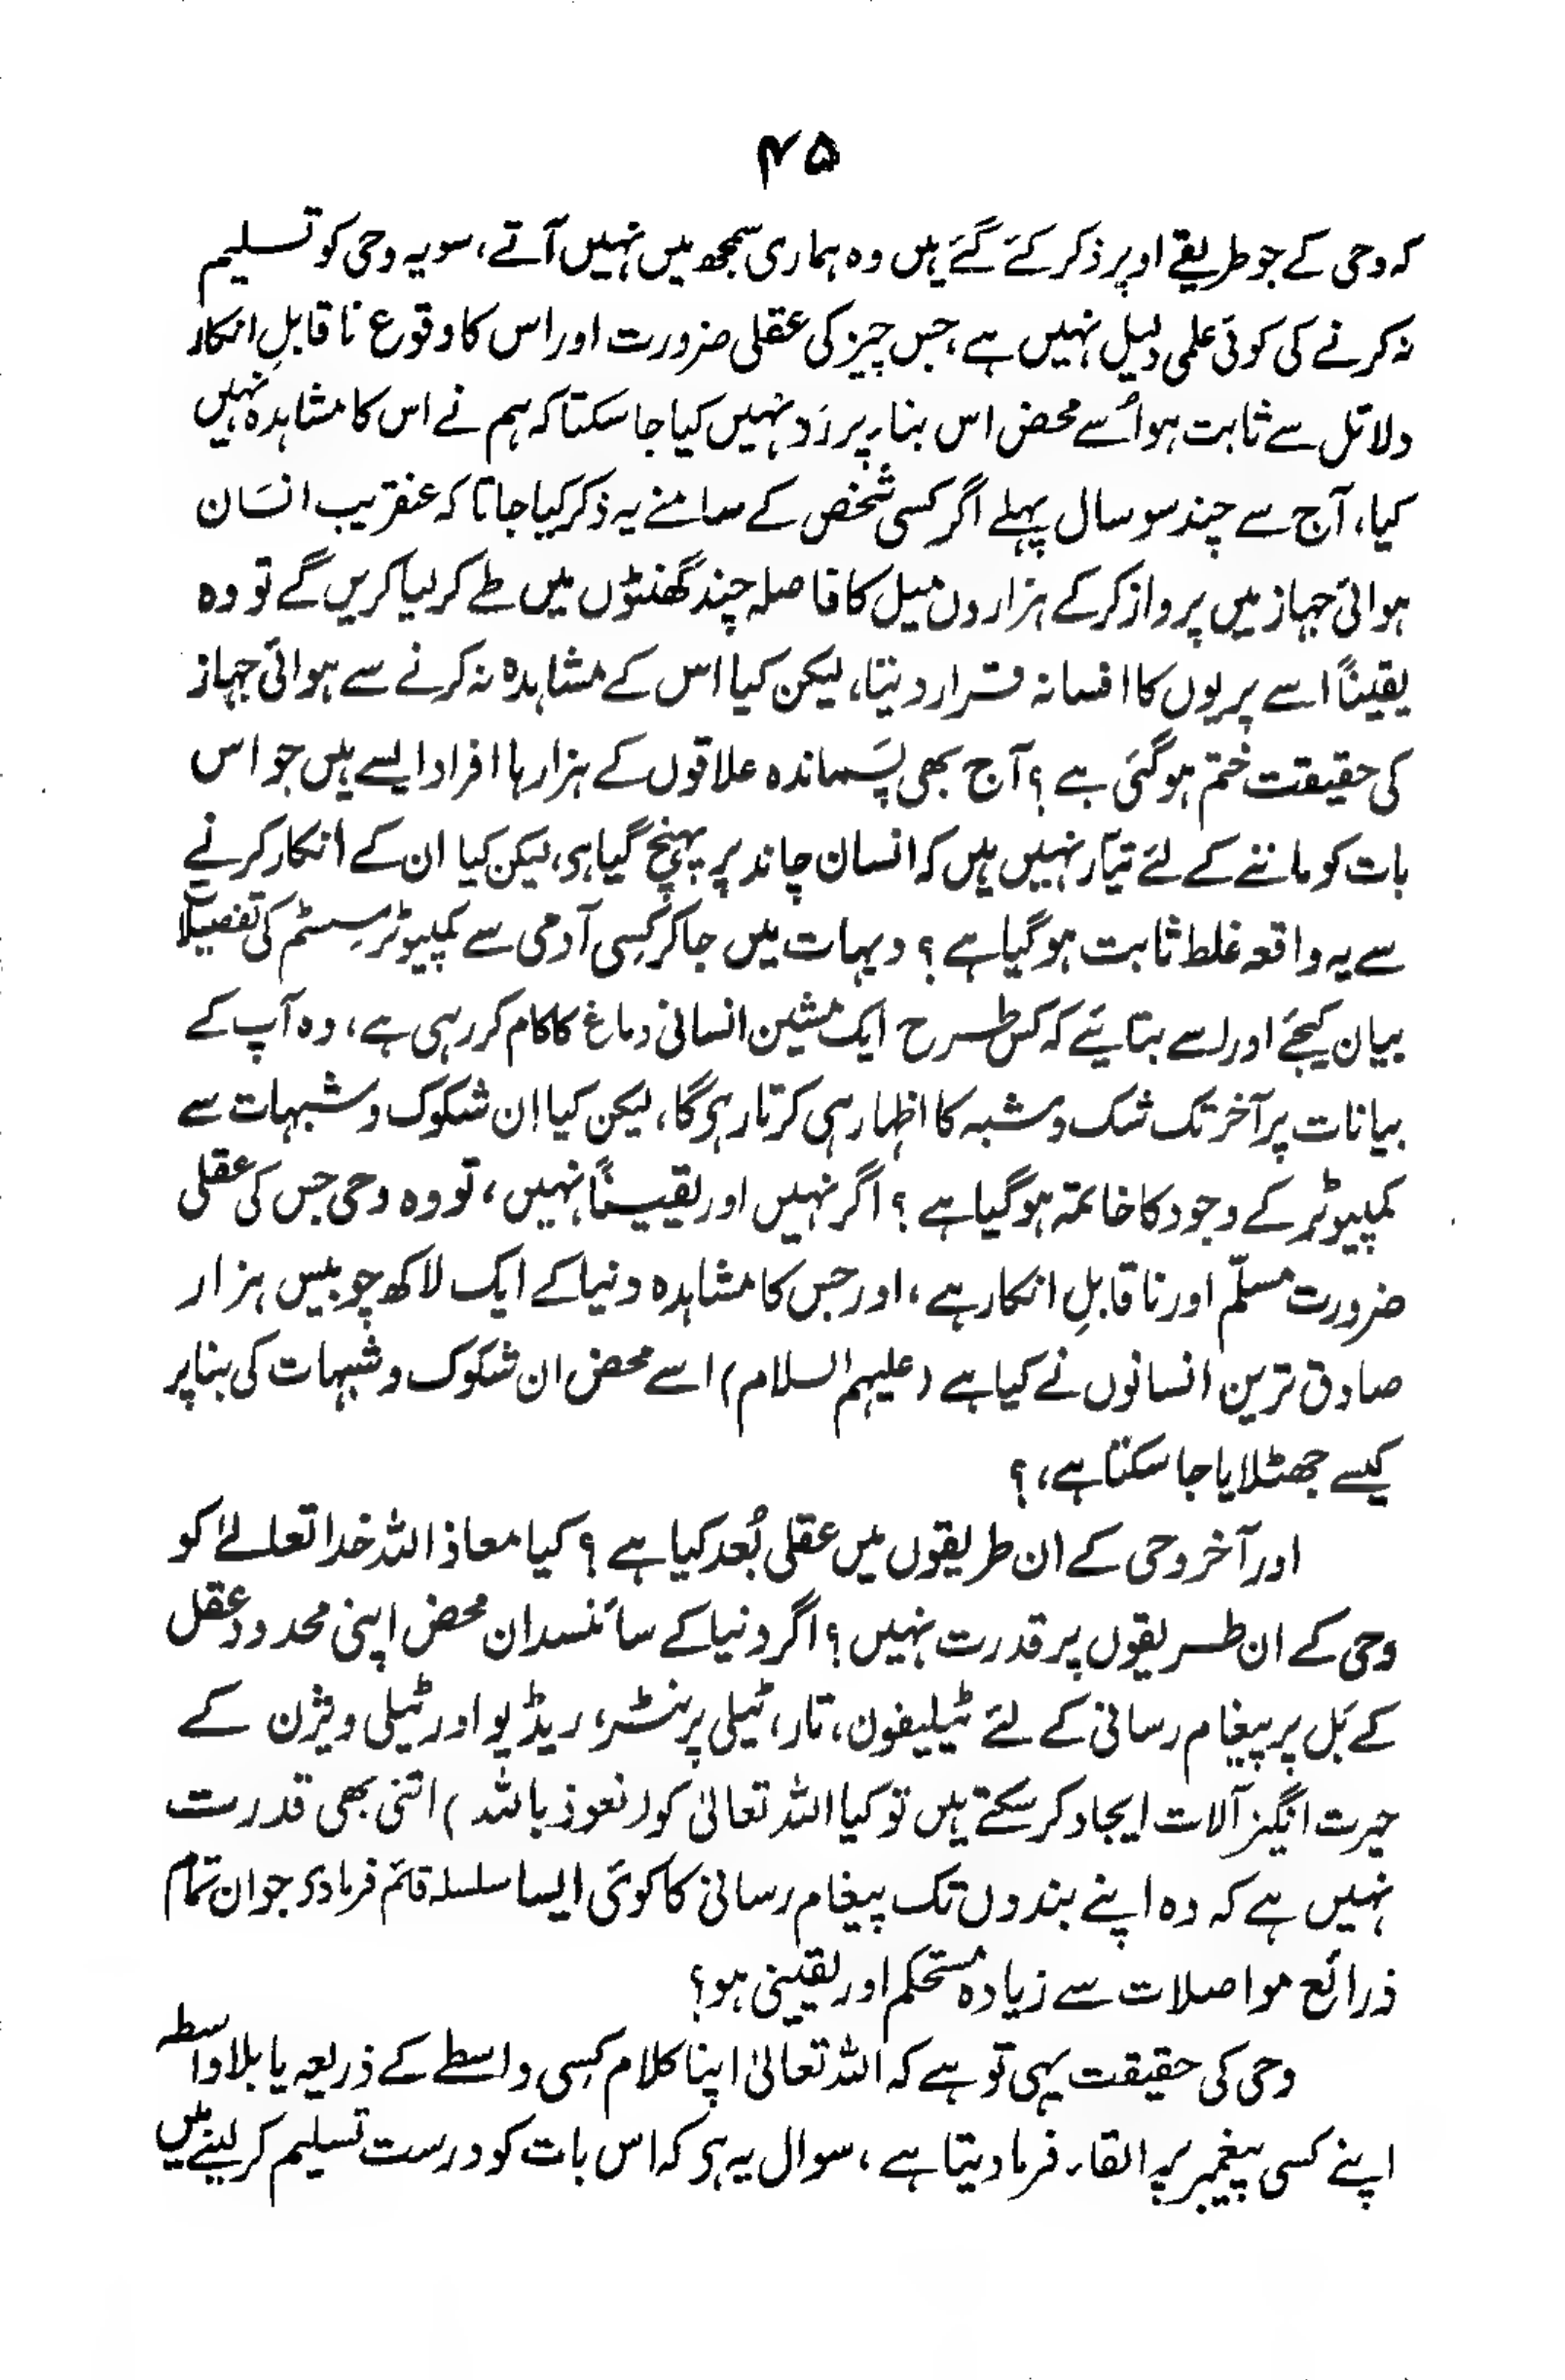 ۴۵
کہ وحی کے جو طریقے اوپر ذکر کئے گئے ہیں وہ ہماری سمجھ میں نہیں آتے، سو یہ وحی کو تسلیم
نہ کرنے کی کوئی علمی دلیل نہیں ہے، جس چیز کی عقلی ضرورت اور اس کا وقوع ناقابلِ انکار
دلائل سے ثابت ہو اُسے محض اس بناء پر رَد نہیں کیا جا سکتا کہ ہم نے اس کا مشاہدہ نہیں
کیا، آج سے چند سو سال پہلے اگر کسی شخص کے سامنے یہ ذکر کیا جاتا کہ عنقریب انسَان
ہوائی جہاز میں پرواز کر کے ہزاروں میل کا فاصلہ چند گھنٹوں میں طے کر لیا کریں گے تو وہ
یقیناً اسے پریوں کا افسانہ قرار دیتا، لیکن کیا اس کے مشاہدہ نہ کرنے سے ہوائی جہاز
کی حقیقت ختم ہو گئی ہے؟ آج بھی پَسماندہ علاقوں کے ہزارہا افراد ایسے ہیں جو اس
بات کو ماننے کے لئے تیّار نہیں ہیں کہ انسان چاند پر پہنچ گیا ہی، لیکن کیا ان کے انکار کرنے
سے یہ واقعہ غلط ثابت ہو گیا ہے؟ دیہات میں جا کر کسِی آدمی سے کمپیوٹر سِسٹم کی تفصیلات
بیان کیجئے اور اسے بتائیے کہ کس طرح ایک مشین انسانی دماغ کا کام کر رہی ہے، وہ آپ کے
بیانات پر آخر تک شک و شبہ کا اظہار ہی کرتا رہی گا، لیکن کیا اِن شکوک و شبہات سے
کمپیوٹر کے وجود کا خاتمہ ہو گیا ہے؟ اگر نہیں اور یقیناً نہیں، تو وہ وحی جس کی عقلی
ضرورت مسلّم اور ناقابلِ انکار ہے، اور جس کا مشاہدہ دنیا کے ایک لاکھ چوبیس ہزار
صادق ترین انسانوں نے کیا ہے (علیہم السلام) اسے محض ان شکوک و شبہات کی بنا پر
کیسے جھٹلایا جا سکتا ہے،؟
اور آخر وحی کے ان طریقوں میں عقلی بُعد کیا ہے؟ کیا معاذ اللہ خدا تعالےٰ کو
وحی کے ان طریقوں پر قدرت نہیں؟ اگر دنیا کے سائنسدان محض اپنی محدود عقل
کے بَل پر پیغام رسانی کے لئے ٹیلیفون، تار، ٹیلی پرنٹر، ریڈیو اور ٹیلی ویژن کے
حیرت انگیز آلات ایجاد کر سکتے ہیں تو کیا اللہ تعالیٰ کو (نعوذ باللہ) اتنی بھی قدرت
نہیں ہے کہ وہ اپنے بندوں تک پیغام رسانی کا کوئی ایسا سلسلہ قائم فرما دی جو ان تمام
ذرائع مواصلات سے زیادہ مستحکم اور یقینی ہو؟
وحی کی حقیقت یہی تو ہے کہ اللہ تعالیٰ اپنا کلام کسِی واسطے کے ذریعہ یا بلاواسطہ
اپنے کسی پیغمبر پر القاء فرما دیتا ہے، سوال یہ ہی کہ اس بات کو درست تسلیم کر لینے میں